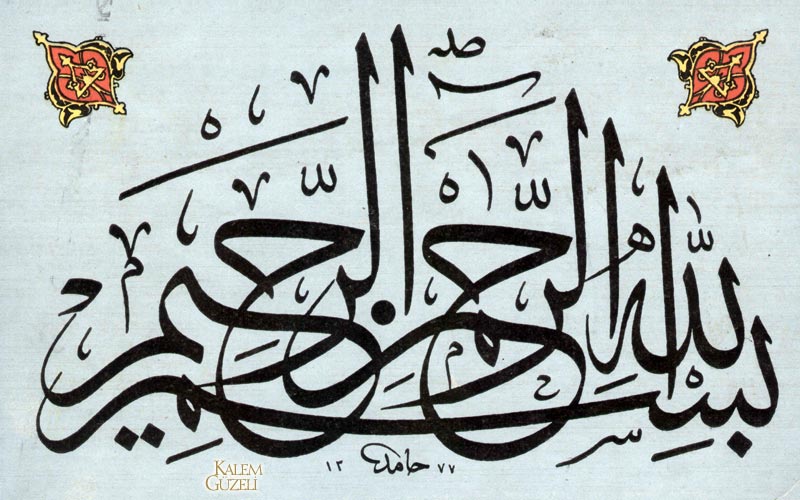 بسم الله الرحمن الرحيم
حامد ١٣٧٧
KALEM
GÜZELİ